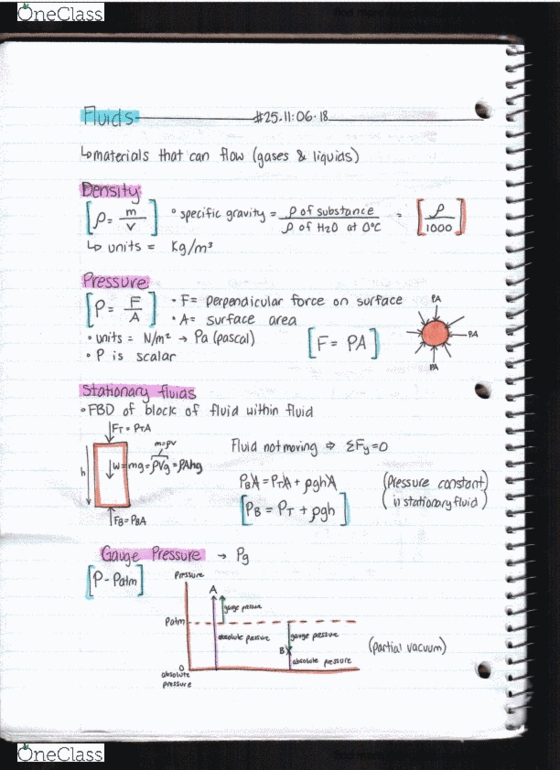 OneClass
Fluids #25.11.06.18
↳materials that can flow (gases & liquids)
Density
[ρ = m/v] • specific gravity = ρ of substance / ρ of H₂O at 0°C = [ρ/1000]
↳ units = Kg/m³
Pressure
[P = F/A] • F = perpendicular force on surface
• A = surface area
• units = N/m² → Pa (pascal) [F = PA]
• P is scalar
PA
PA
PA
Stationary fluids
• FBD of block of fluid within fluid
F_T = P_TA
h
m=ρv
W=mg=ρVg=ρAhg
F_B = P_BA
Fluid not moving ⇒ ΣFy=0
P_BA = P_TA + ρghA
[P_B = P_T + ρgh]
(Pressure constant
in stationary fluid)
Gauge Pressure → Pg
[P - Patm]
Pressure
A
gauge pressure
Patm
absolute pressure
gauge pressure
B
absolute pressure
(partial vacuum)
0
absolute
pressure
OneClass